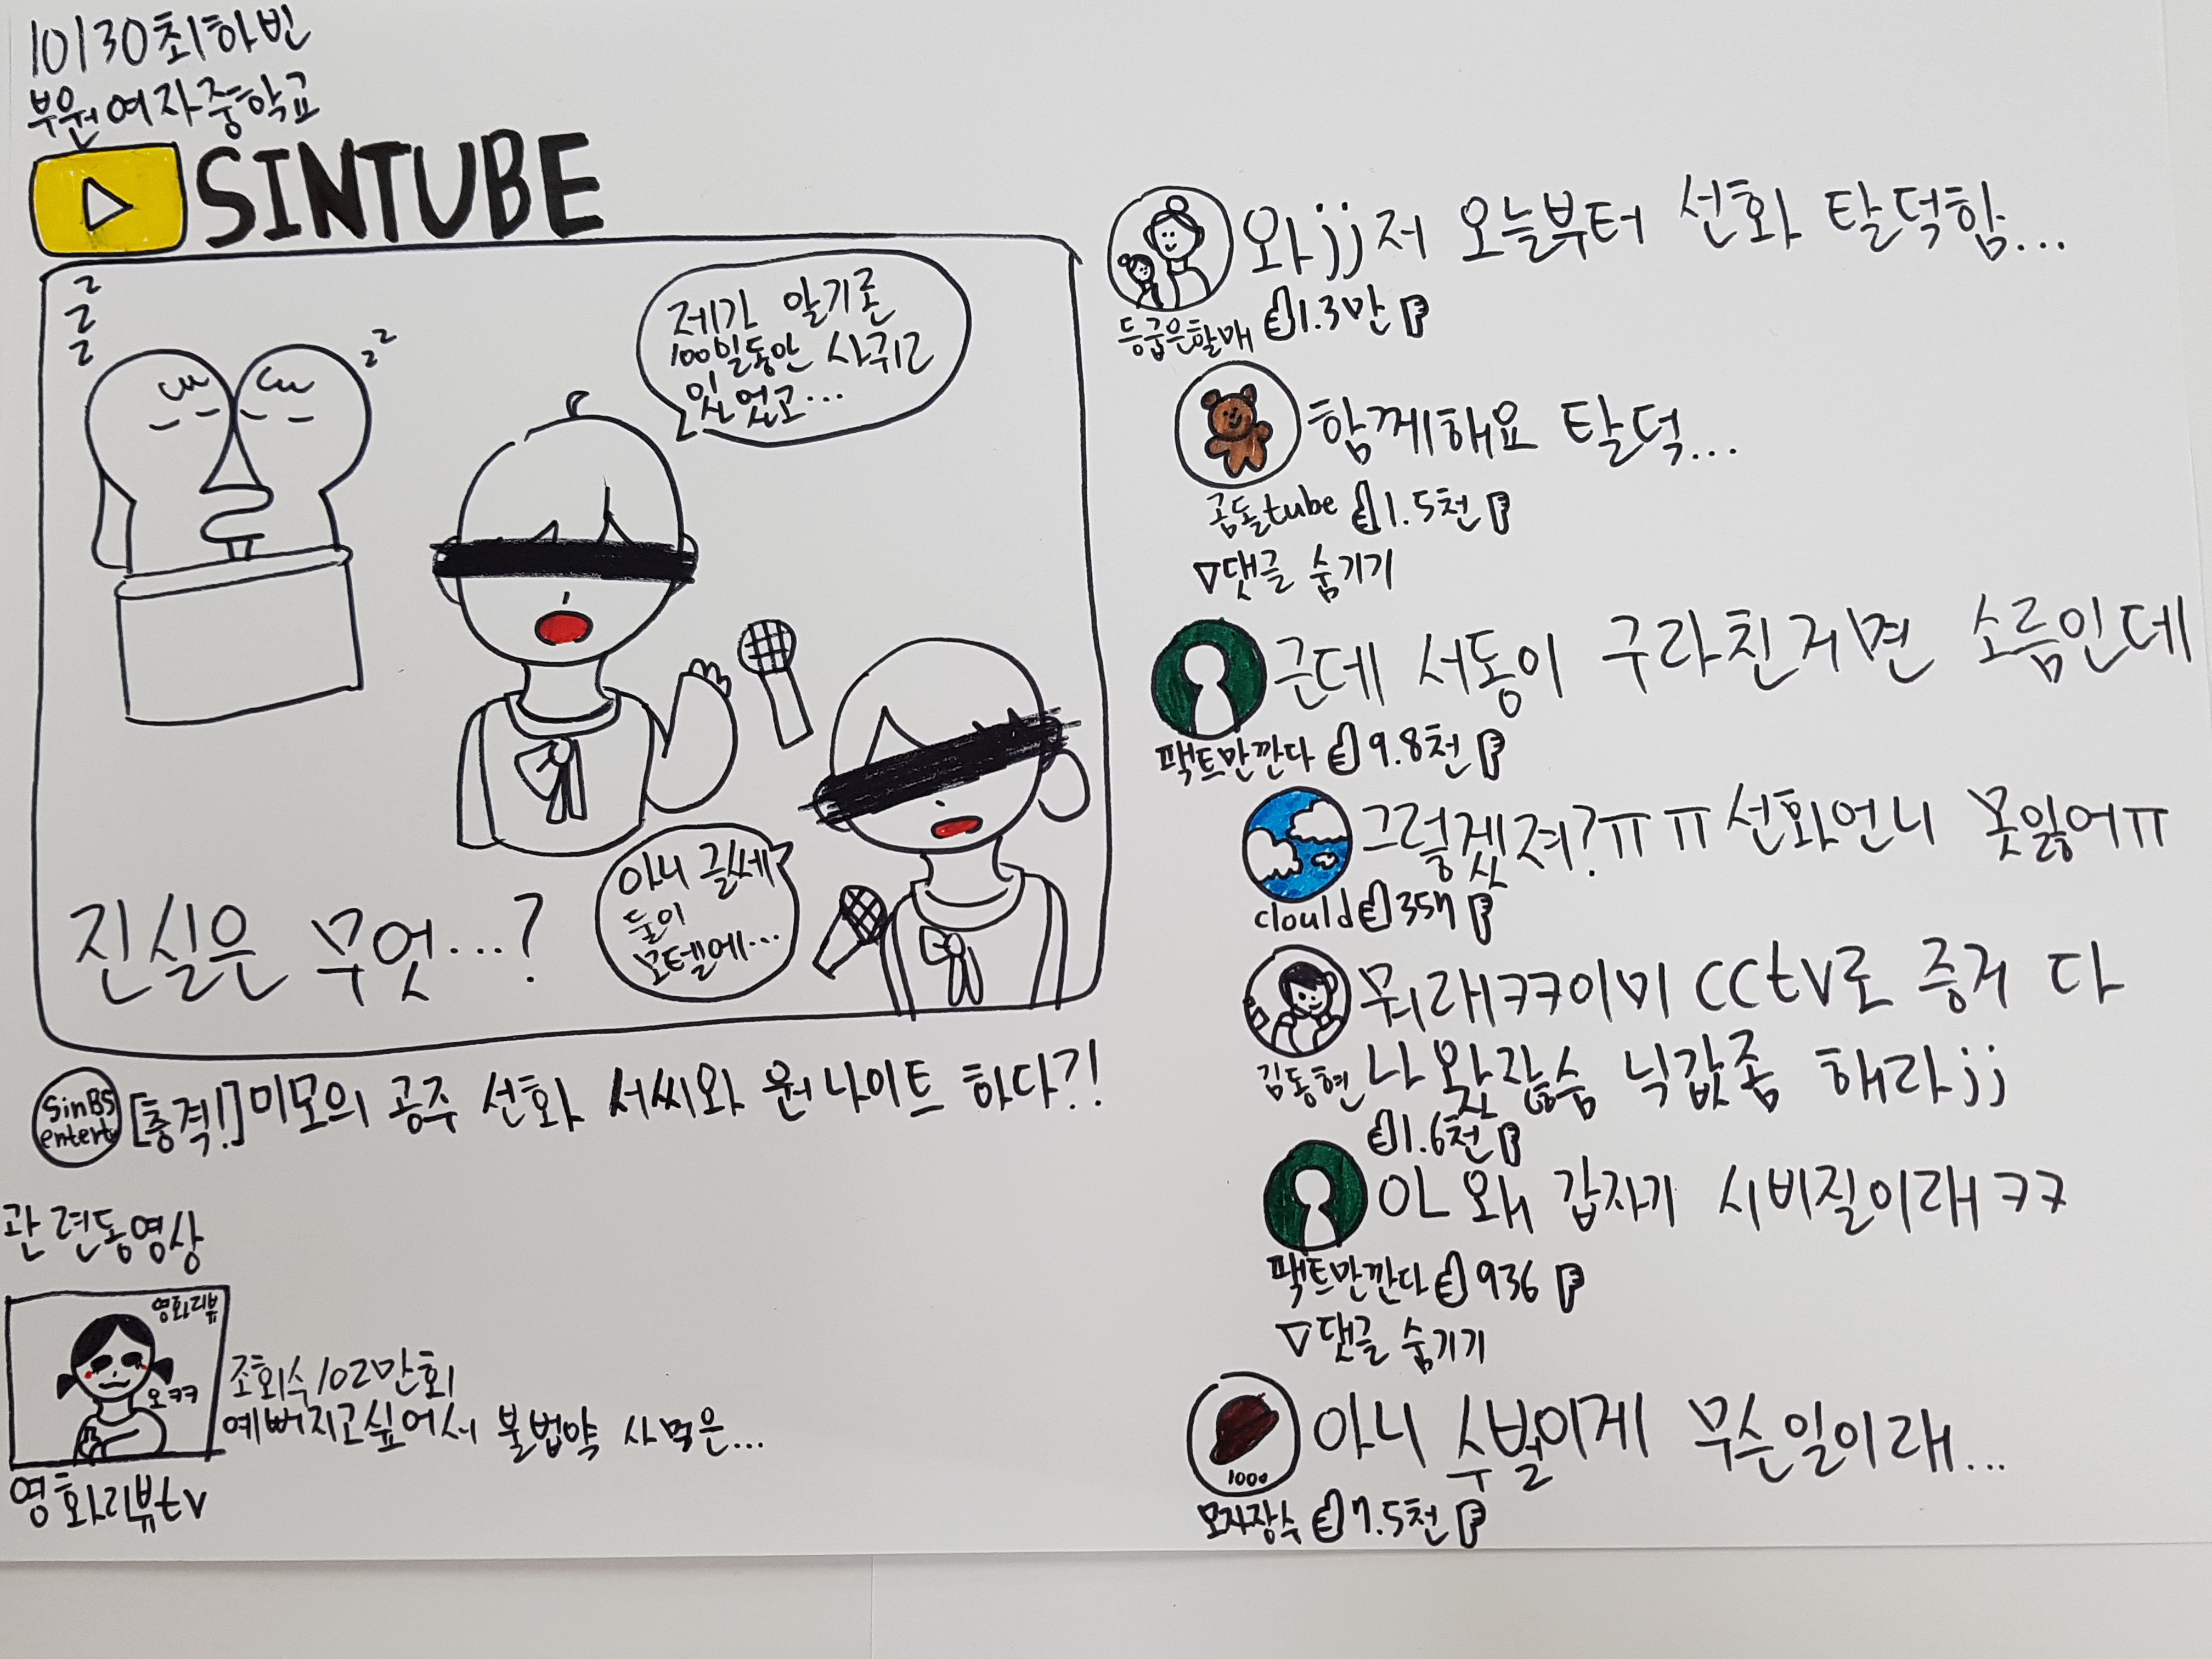 10130최하빈
부원여자중학교
SINTUBE
z
z
z
z z
제가 알기론
100일동안 사귀고
있었고...
아니 글쎄
둘이
모텔에...
진실은 무엇...?
SinBS
entert
[충격!]미모의 공주 선화 서씨와 원나이트 하다?!
관련동영상
영화리뷰
오ㅋㅋ
조회수102만회
예뻐지고싶어서 불법약 사먹은...
영화리뷰tv
와jj저 오늘부터 선화 탈덕함...
등굽은할매 1.3만
함께해요 탈덕...
곰돌tube 1.5천
▽댓글 숨기기
근데 서동이 구라친거면 소름인데
팩트만깐다 9.8천
그렇겠져?ㅠㅠ선화언니 못잃어ㅠ
clould 357
뭐래ㅋㅋ이미 cctv로 증거 다
김동현 나왔잖슴 닉값좀 해라jj
1.6천
아 왜 갑자기 시비질이래ㅋㅋ
팩트만깐다 936
▽댓글 숨기기
1000
모자장수 7.5천